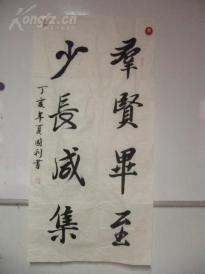 羣賢畢至
少長咸集
丁亥年夏国利書
Kongfz.com